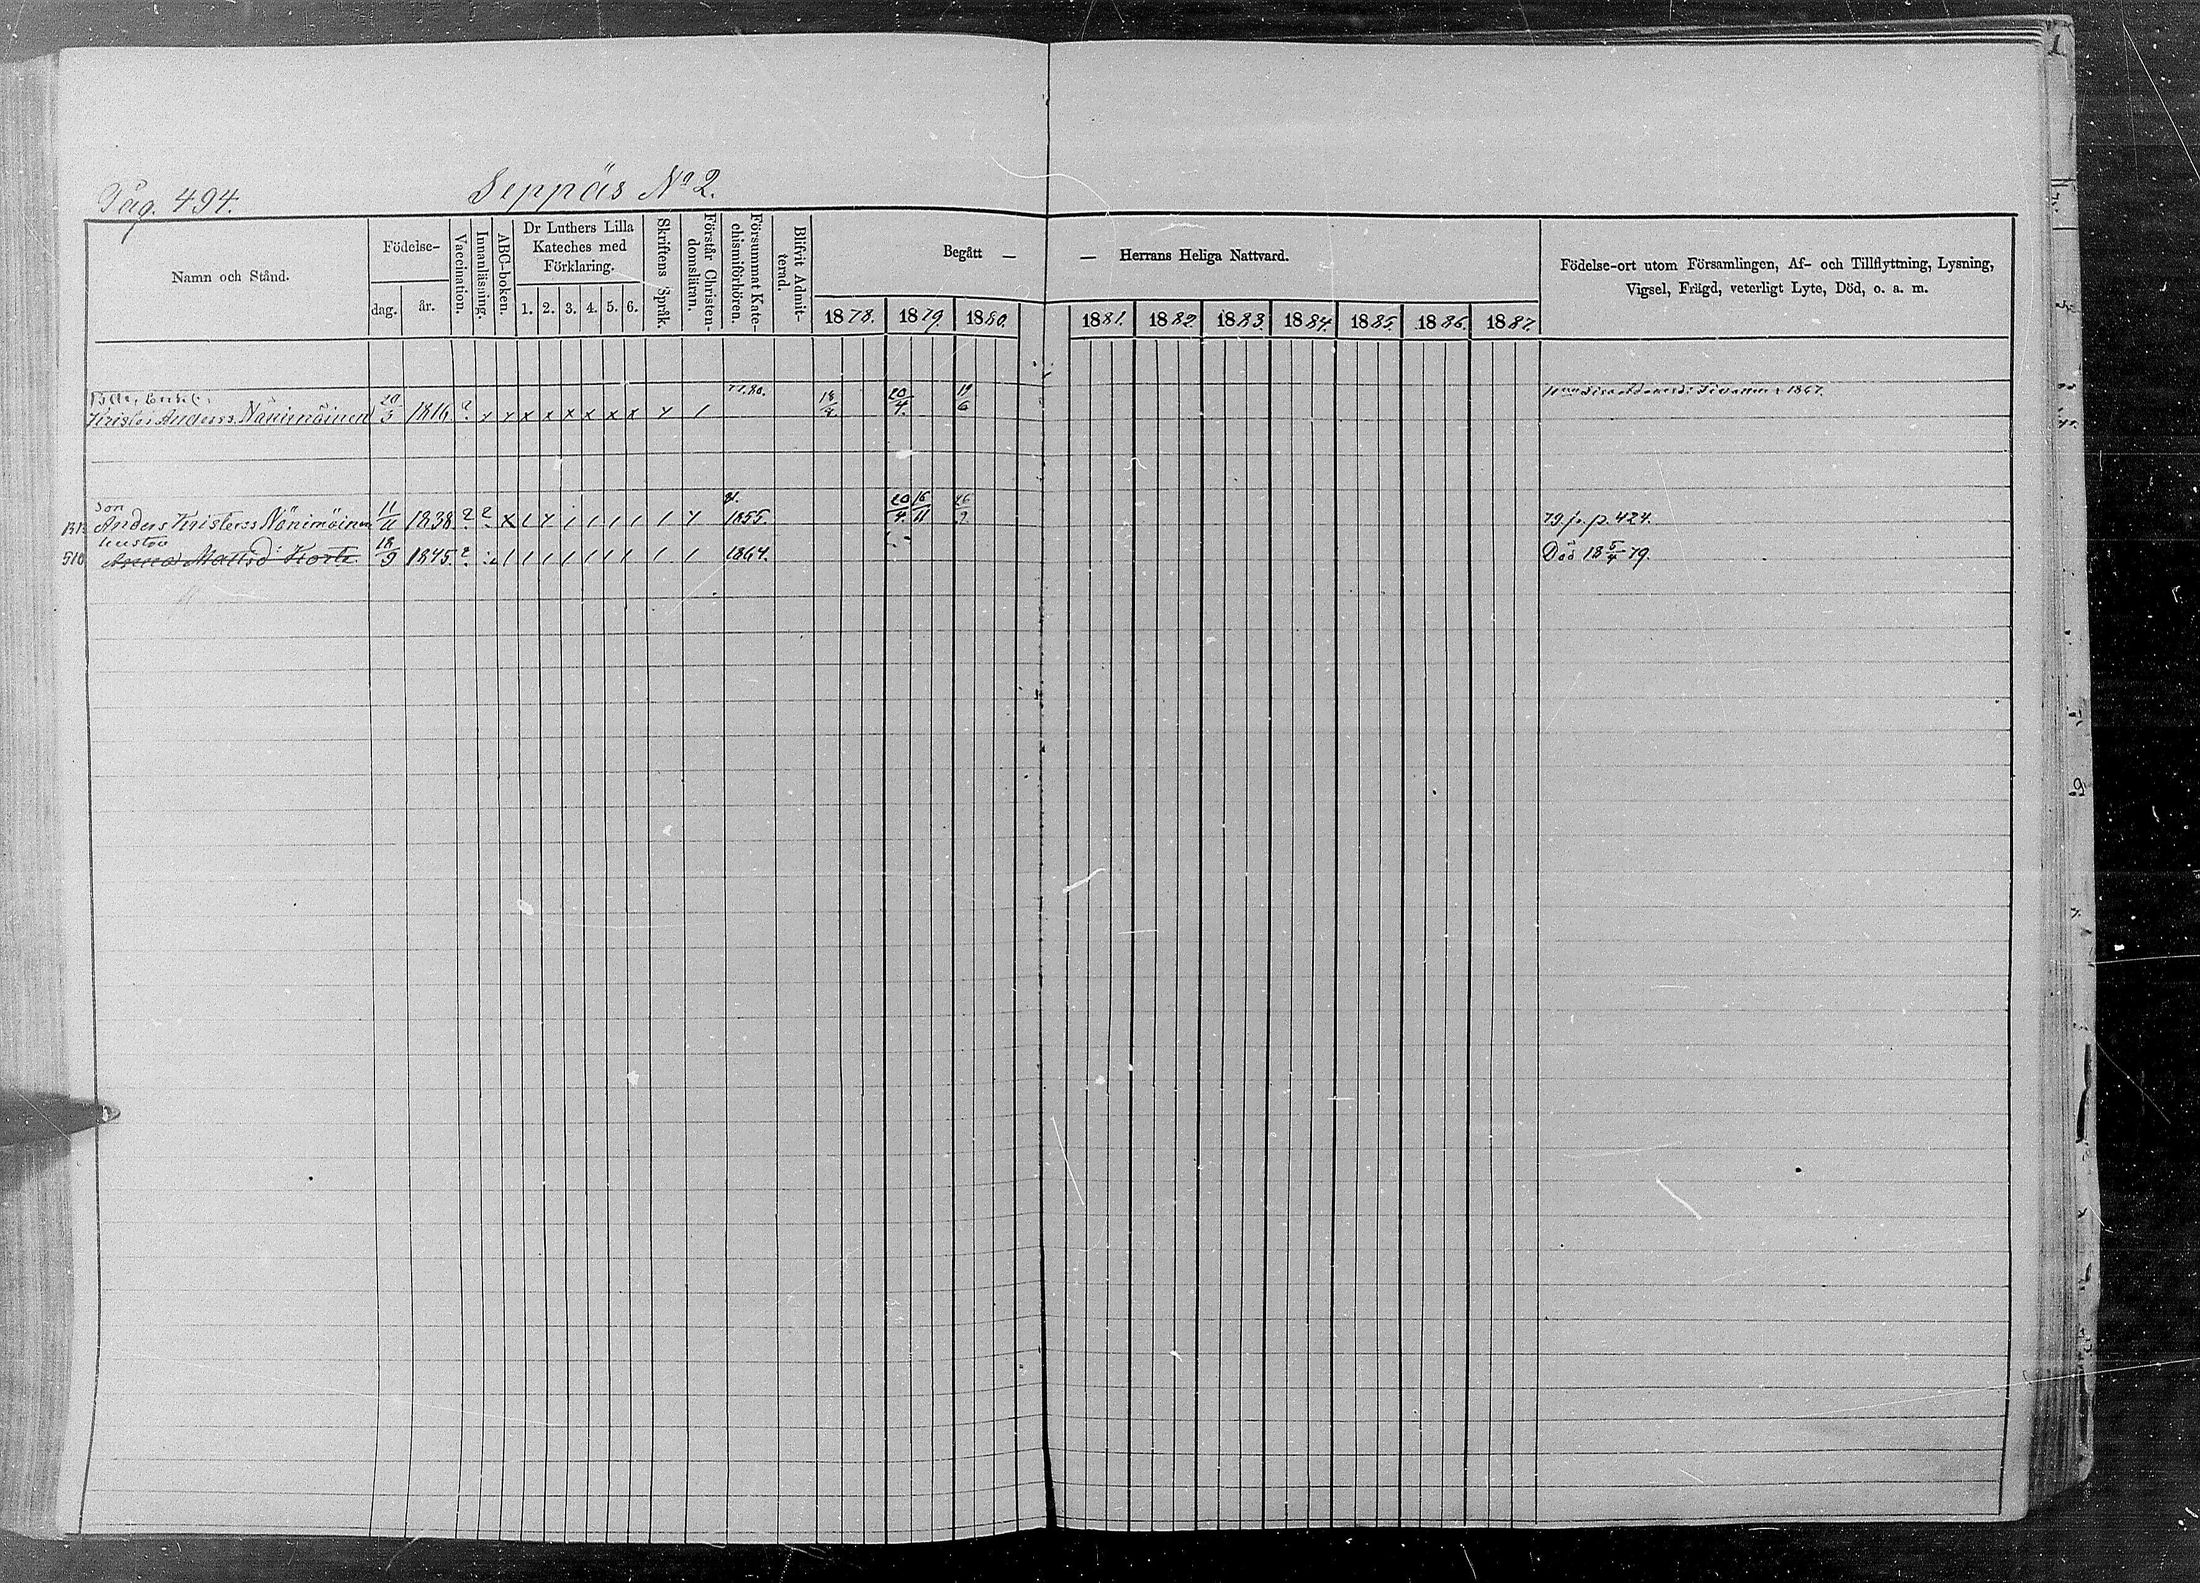 Pag. 494. Seppäs No 2.
Namn och Stånd.
Födelse-
dag.
år.
Vaccination.
Innanläsning.
ABC-boken.
Dr Luthers Lilla
Kateches med
Förklaring.
1. 2. 3. 4. 5. 6.
Skriftens Språk.
Förstår Christen-
domsläran.
Försummat Kate-
chismiförhören.
Blifvit Admit-
terad.
Begått — — Herrans Heliga Nattvard.
1878. 1879. 1880. 1881. 1882. 1883. 1884. 1885. 1886. 1887.
Födelse-ort utom Församlingen, Af- och Tillflyttning, Lysning,
Vigsel, Frägd, veterligt Lyte, Död, o. a. m.
77.80. 1867.
Krister Anderss. Nänimäinen 20/3 1816 ? x x x x x x x x x / 18/4 20/4. 19/6
Son
Anders Kristerss Nänimäinen 11/11 1838 ? ? x 1855. 20/4. 16/11 16/9 79 fr. p. 424.
hustru
510 Anna Mattsd: Korte 18/9 1845 ? 1864. Död 18 5/4 79.